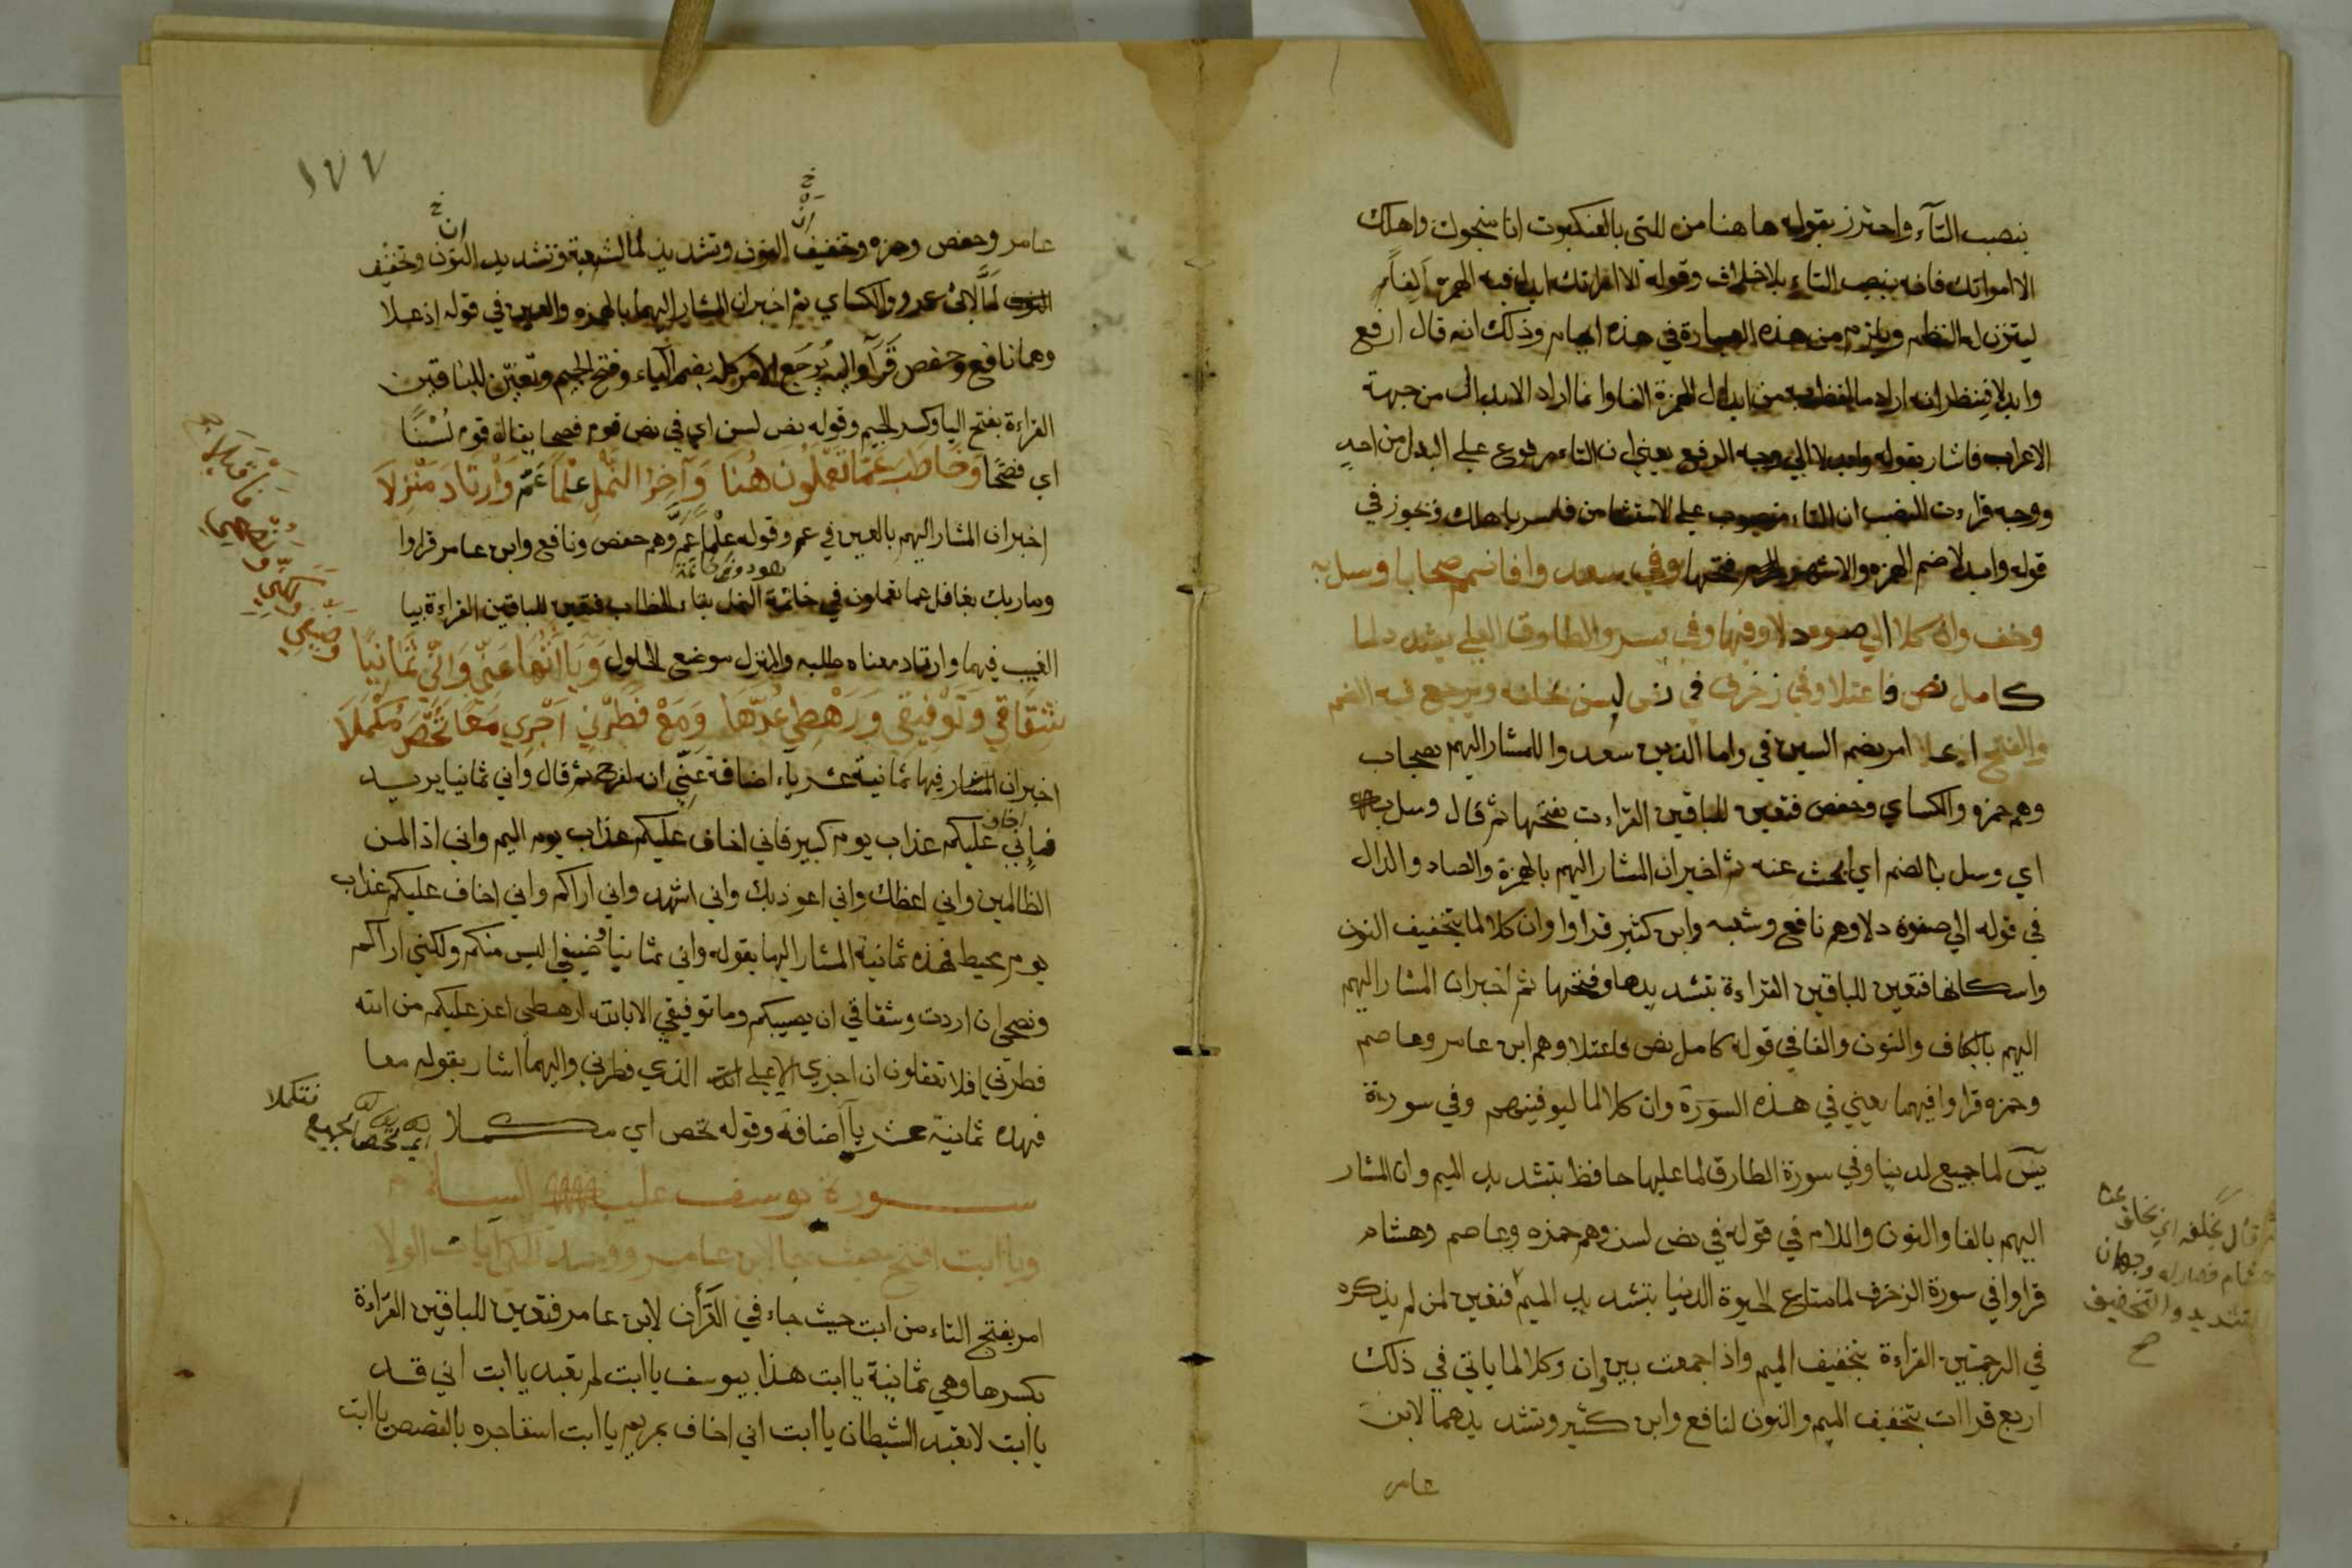 بنصب التآء واحترز بقوله ها هنا من التى بالعنكبوت انا منجوك واهلك
الا امراتك فانه بنصب التاء بلا خلاف وقوله الا امراتك ابدل فيه الهمزة الفاً
ليتزن له النظم ويلزم من هذه العبارة في هذه ايهام وذلك انه قال ارفع
وابدلا فيظن انه اراد ما لفظ به من ابدال الهمزة الفا وانما اراد الابدال من جهة
الاعراب فاشار بقوله وابدلا الي وجه الرفع يعني ان التاء مرفوع علي البدل من احد
ووجه قراءت النصب ان التاء منصوب علي الاستثنا من فاسر باهلك ويجوز في
قوله وابدلا ضم الهمزه والاشهر فتحها وفي سعدوا فاضمم صحابا وسل به
وخف وان كلا الي صفوه دلا وفيها وفي يسن والطارق العلي يشدد لما
كامل نص فاعتلا وفي زخرف في نص لسن بخلفه ويرجع فيه الضم
والفتح اذ علا امر بضم السين في واما الذين سعدوا للمشار اليهم بصحاب
وهم حمزه والكساي وحفص فتعين للباقين القراءت بفتحها ثم قال وسل به
اي وسل بالضم اي ابحث عنه ثم اخبر ان المشار اليهم بالهمزة والصاد والدال
في قوله الي صفوه دلا وهم نافع وشعبه وابن كثير قراوا وان كلا لما بتخفيف النون
واسكانها فتعين للباقين القراءة بتشديدها وفتحها ثم اخبر ان المشار اليهم
اليهم بالكاف والنون والفا في قوله كامل نص فاعتلا وهم ابن عامر وعاصم
وحمزه قراوا فيهما يعني في هذه السورة وان كلا لما ليوفينهم وفي سورة
يسٓ لما جميع لدينا وفي سورة الطارق لما عليها حافظ بتشديد الميم وان المشار
اليهم بالفا والنون واللام في قوله في نص لسن وهم حمزه وعاصم وهشام
قراوا في سورة الزخرف لما متاع الحيوة الدنيا بتشديد الميم فتعين لمن لم يذكره
في الترجمتين القراءة بتخفيف الميم واذا جمعت بين وان وكلا لما ياتي في ذلك
اربع قراات بتخفيف الميم والنون لنافع وابن كثير وتشديدهما لابن
عامر
ثم قال بخلفه اي بخلاف عن
هشام فصار له وجهان
التشديد والتخفيف
صح
١٧٧
عامر وحفص وحمزه وتخفيف النون وتشديد لما لشعبة وتشديد النون وتخفيف
لما لابي عمرو والكساي ثم اخبر ان المشار اليهما بالهمزه والعين في قوله اذ علا
وهما نافع وحفص قرآ واليه يُرجَع الامر كله بضم الياء وفتح الجيم وتعيّن للباقين
القراءة بفتح اليا وكسر الجيم وقوله نص لسن اي في نص قوم فصحا يقال قوم لُسْنًا
اي فصحًا وَخَاطَبَ عَمّا تَعْمَلُونَ هُنَا وَآخِرُ النَّمْلِ عِلْمًا عَمّ وَارْتَادَ مَنْزِلَا
اخبر ان المشار اليهم بالعين في عم وقوله عِلْمًا عَمَّ وهم حفص ونافع وابن عامر قراوا
وما ربك بغافل عما تعملون في خاتمة النمل بتاء الخطاب فتعين للباقين القراءة بيا
الغيب فيهما وارتاد معناه طلبه والمنزل موضع الحلول وَيَاآتُهَا عَنِّي وَانِّي ثَمَانِيًا
شِقَاقِي وَتَوْفِيقِي وَرَهْطِي عُدَّهَا وَمَعْ فَطَرْنِي اَجْرِي مَعًا تُحْصَ مُكْمِلَا
اخبر ان المشار فيها ثمانية عشر ياء اضافة عَنِّي انه لفرح ثم قال واني ثمانيا يريد
فانِّي اخاف عليكم عذاب يوم كبير فاني اخاف عليكم عذاب يوم اليم واني اذا لمن
الظالمين واني اعظك واني اعوذ بك واني اشهد واني اراكم واني اخاف عليكم عذاب
يوم محيط فهذه ثمانية المشار اليها بقوله واني ثمانيا وضيفي اليس منكم ولكني اراكم
ونصحي ان اردت وشقاقي ان يصيبكم وما توفيقي الا بالله ارهطي اعز عليكم من الله
فطرني افلا تعقلون ان اجري الا علي الذي فطرني واليهما اشار بقوله معا
فهده ثمانية عشر يآ اضافة وقوله تحص اي مكملا
سورة يوسف عليه السلام
ويا ابت افتح حيث جا لابن عامر ووحد للمكي آيات الولا
امر بفتح التاء من ابت حيث جاء في القرأن لابن عامر فتعين للباقين القراءة
بكسرها وهي ثمانية يا ابت هذا بيوسف يا ابت لم تعبد يا ابت اني قد
يا ابت لا تعبد الشيطان يا ابت اني اخاف بمريم يا ابت استاجره بالقصص يا ابت